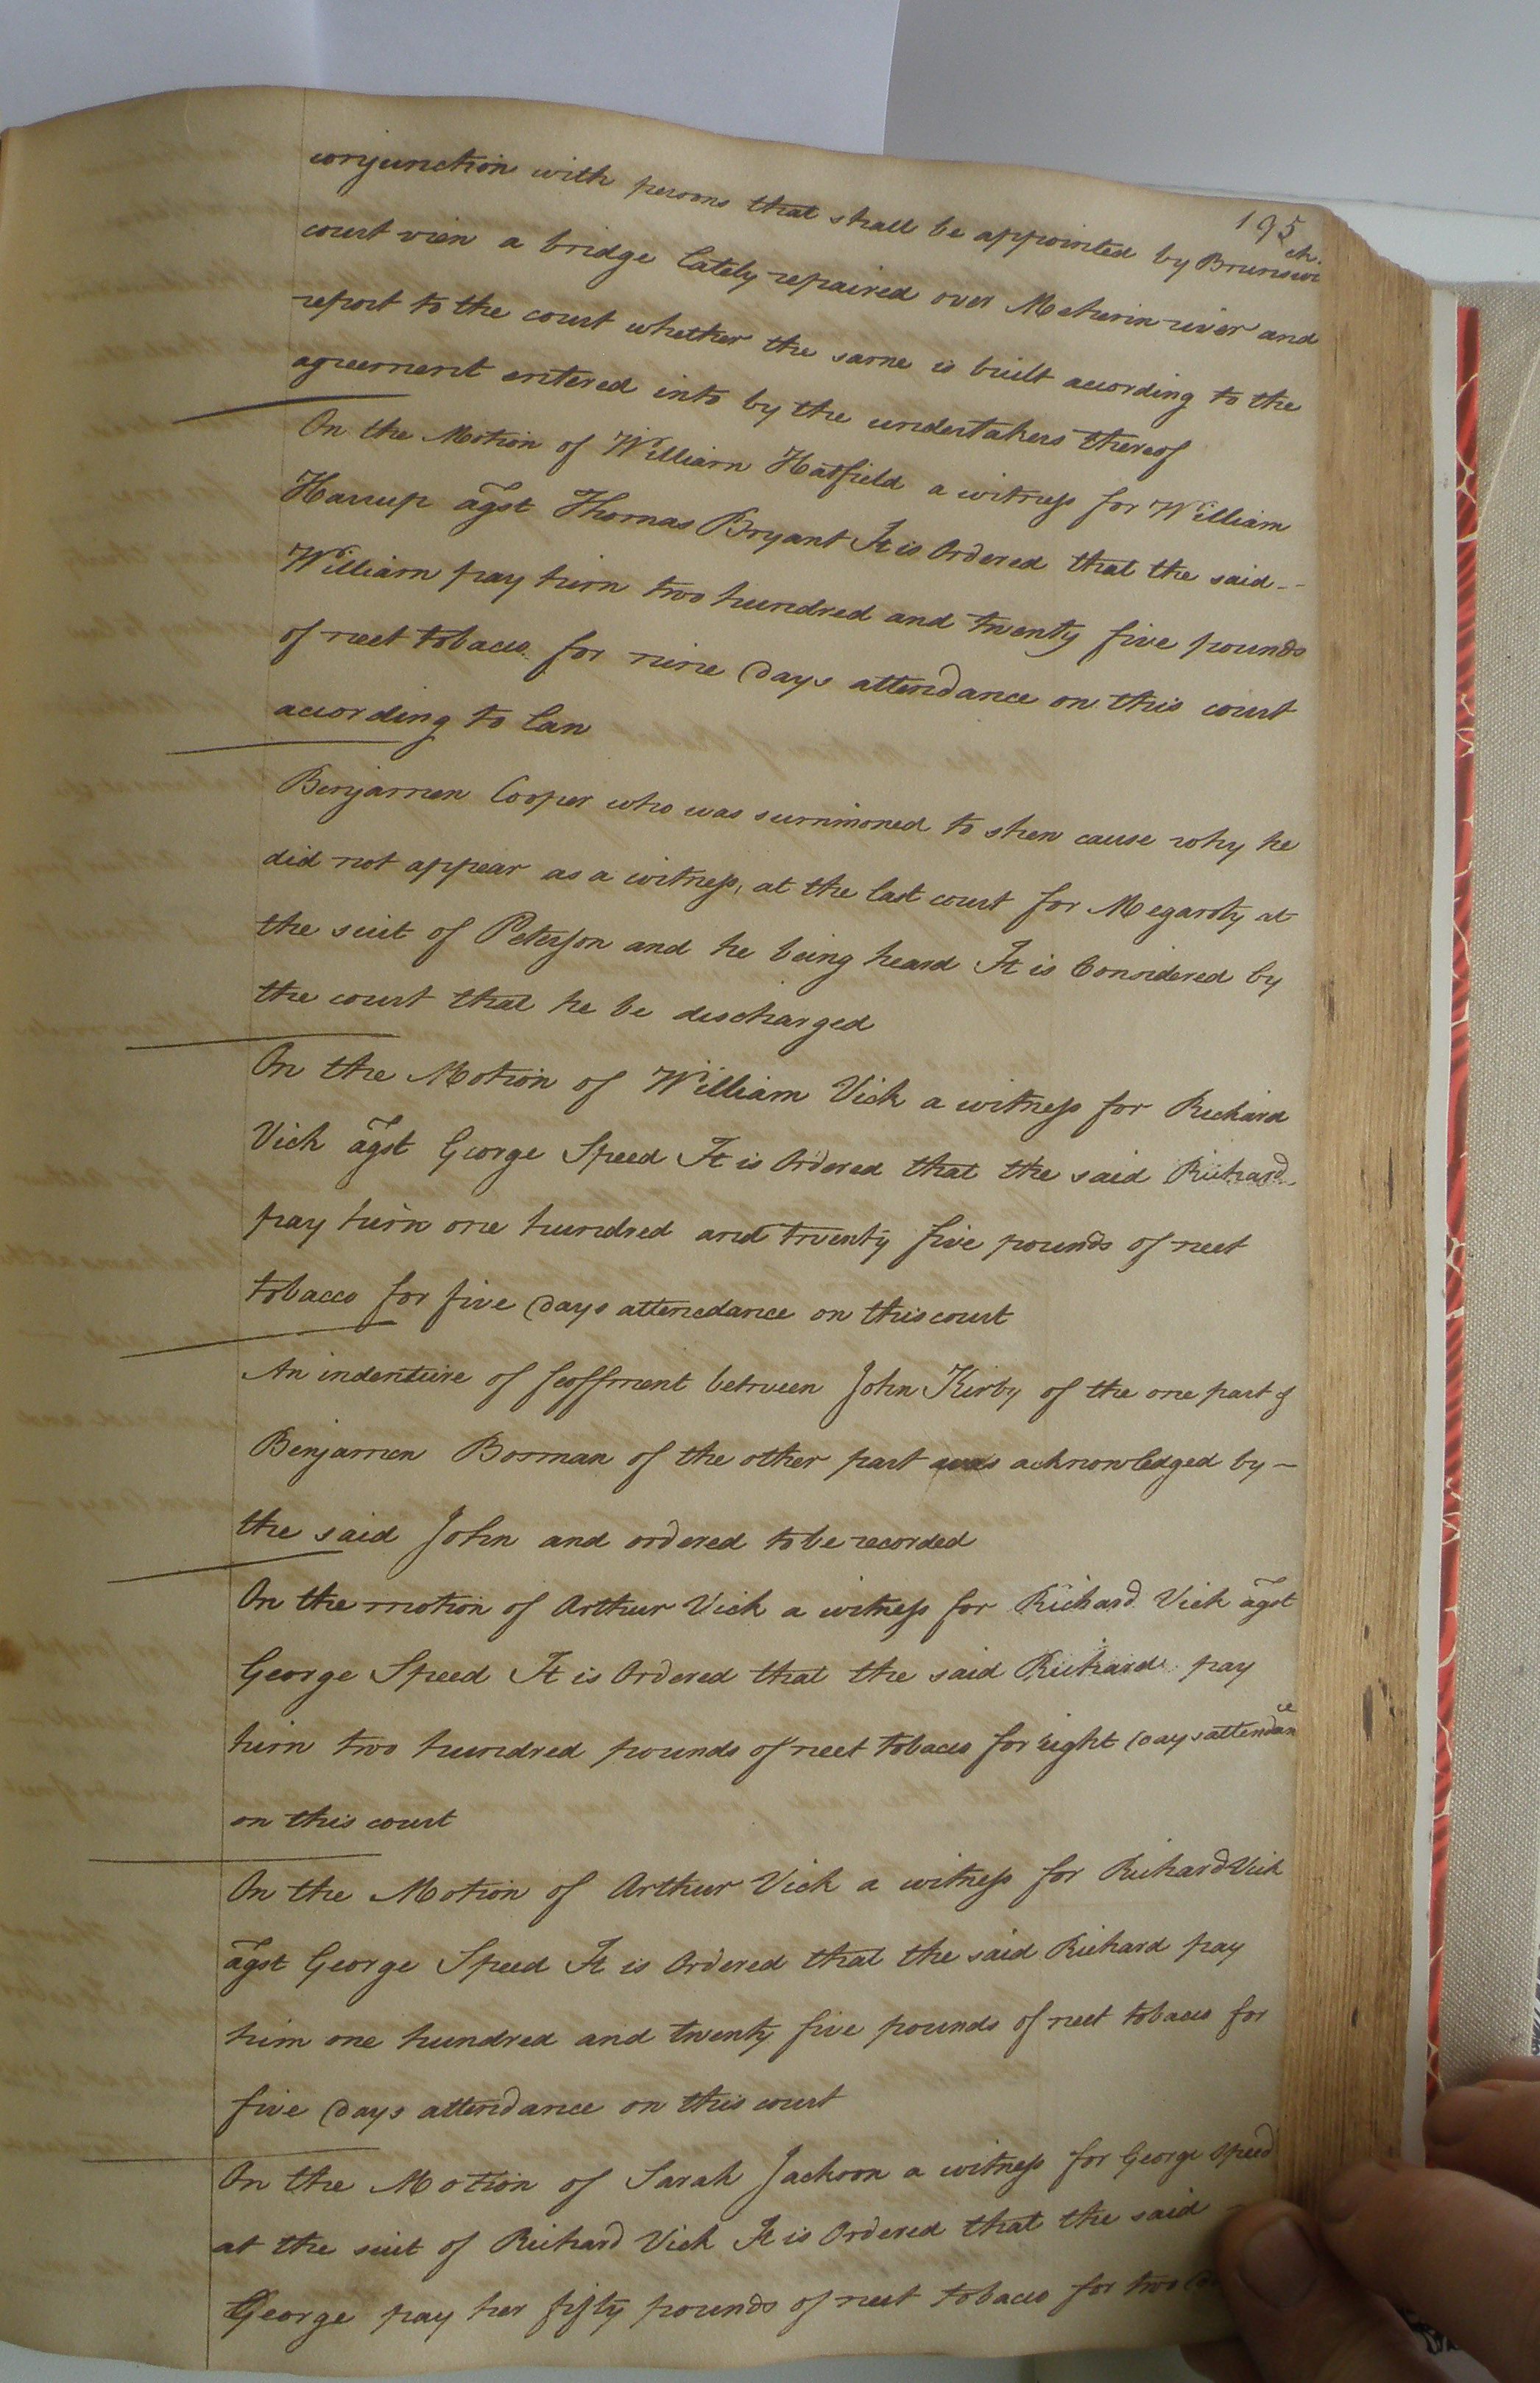 195
conjunction with persons that shall be appointed by Brunswick
court view a bridge lately repaired over Meherin river and
report to the court whether the same is built according to the
agreement entered into by the undertakers thereof
On the Motion of William Hatfield a witness for William
Harrup agst Thomas Bryant It is Ordered that the said -
William pay him two hundred and twenty five pounds
of neet tobacco for nine days attendance on this court
according to law
Benjamen Cooper who was summoned to shew cause why he
did not appear as a witness, at the last court for Megarity at
the suit of Peterson and he being heard It is Considered by
the court that he be discharged
On the Motion of William Vick a witness for Richard
Vick agst George Speed It is Ordered that the said Richard
pay him one hundred and twenty five pounds of neet
tobacco for five days attendance on this court
An indenture of feoffment between John Kirby of the one part &
Benjamen Borman of the other part was acknowledged by -
the said John and ordered to be recorded
On the motion of Arthur Vick a witness for Richard Vick agst
George Speed It is Ordered that the said Richard pay
him two hundred pounds of neet tobacco for eight days attendance
on this court
On the Motion of Arthur Vick a witness for Richard Vick
agst George Speed It is Ordered that the said Richard pay
him one hundred and twenty five pounds of neet tobacco for
five days attendance on this court
On the Motion of Sarah Jackson a witness for George Speed
at the suit of Richard Vick It is Ordered that the said
George pay her fifty pounds of neet tobacco for two